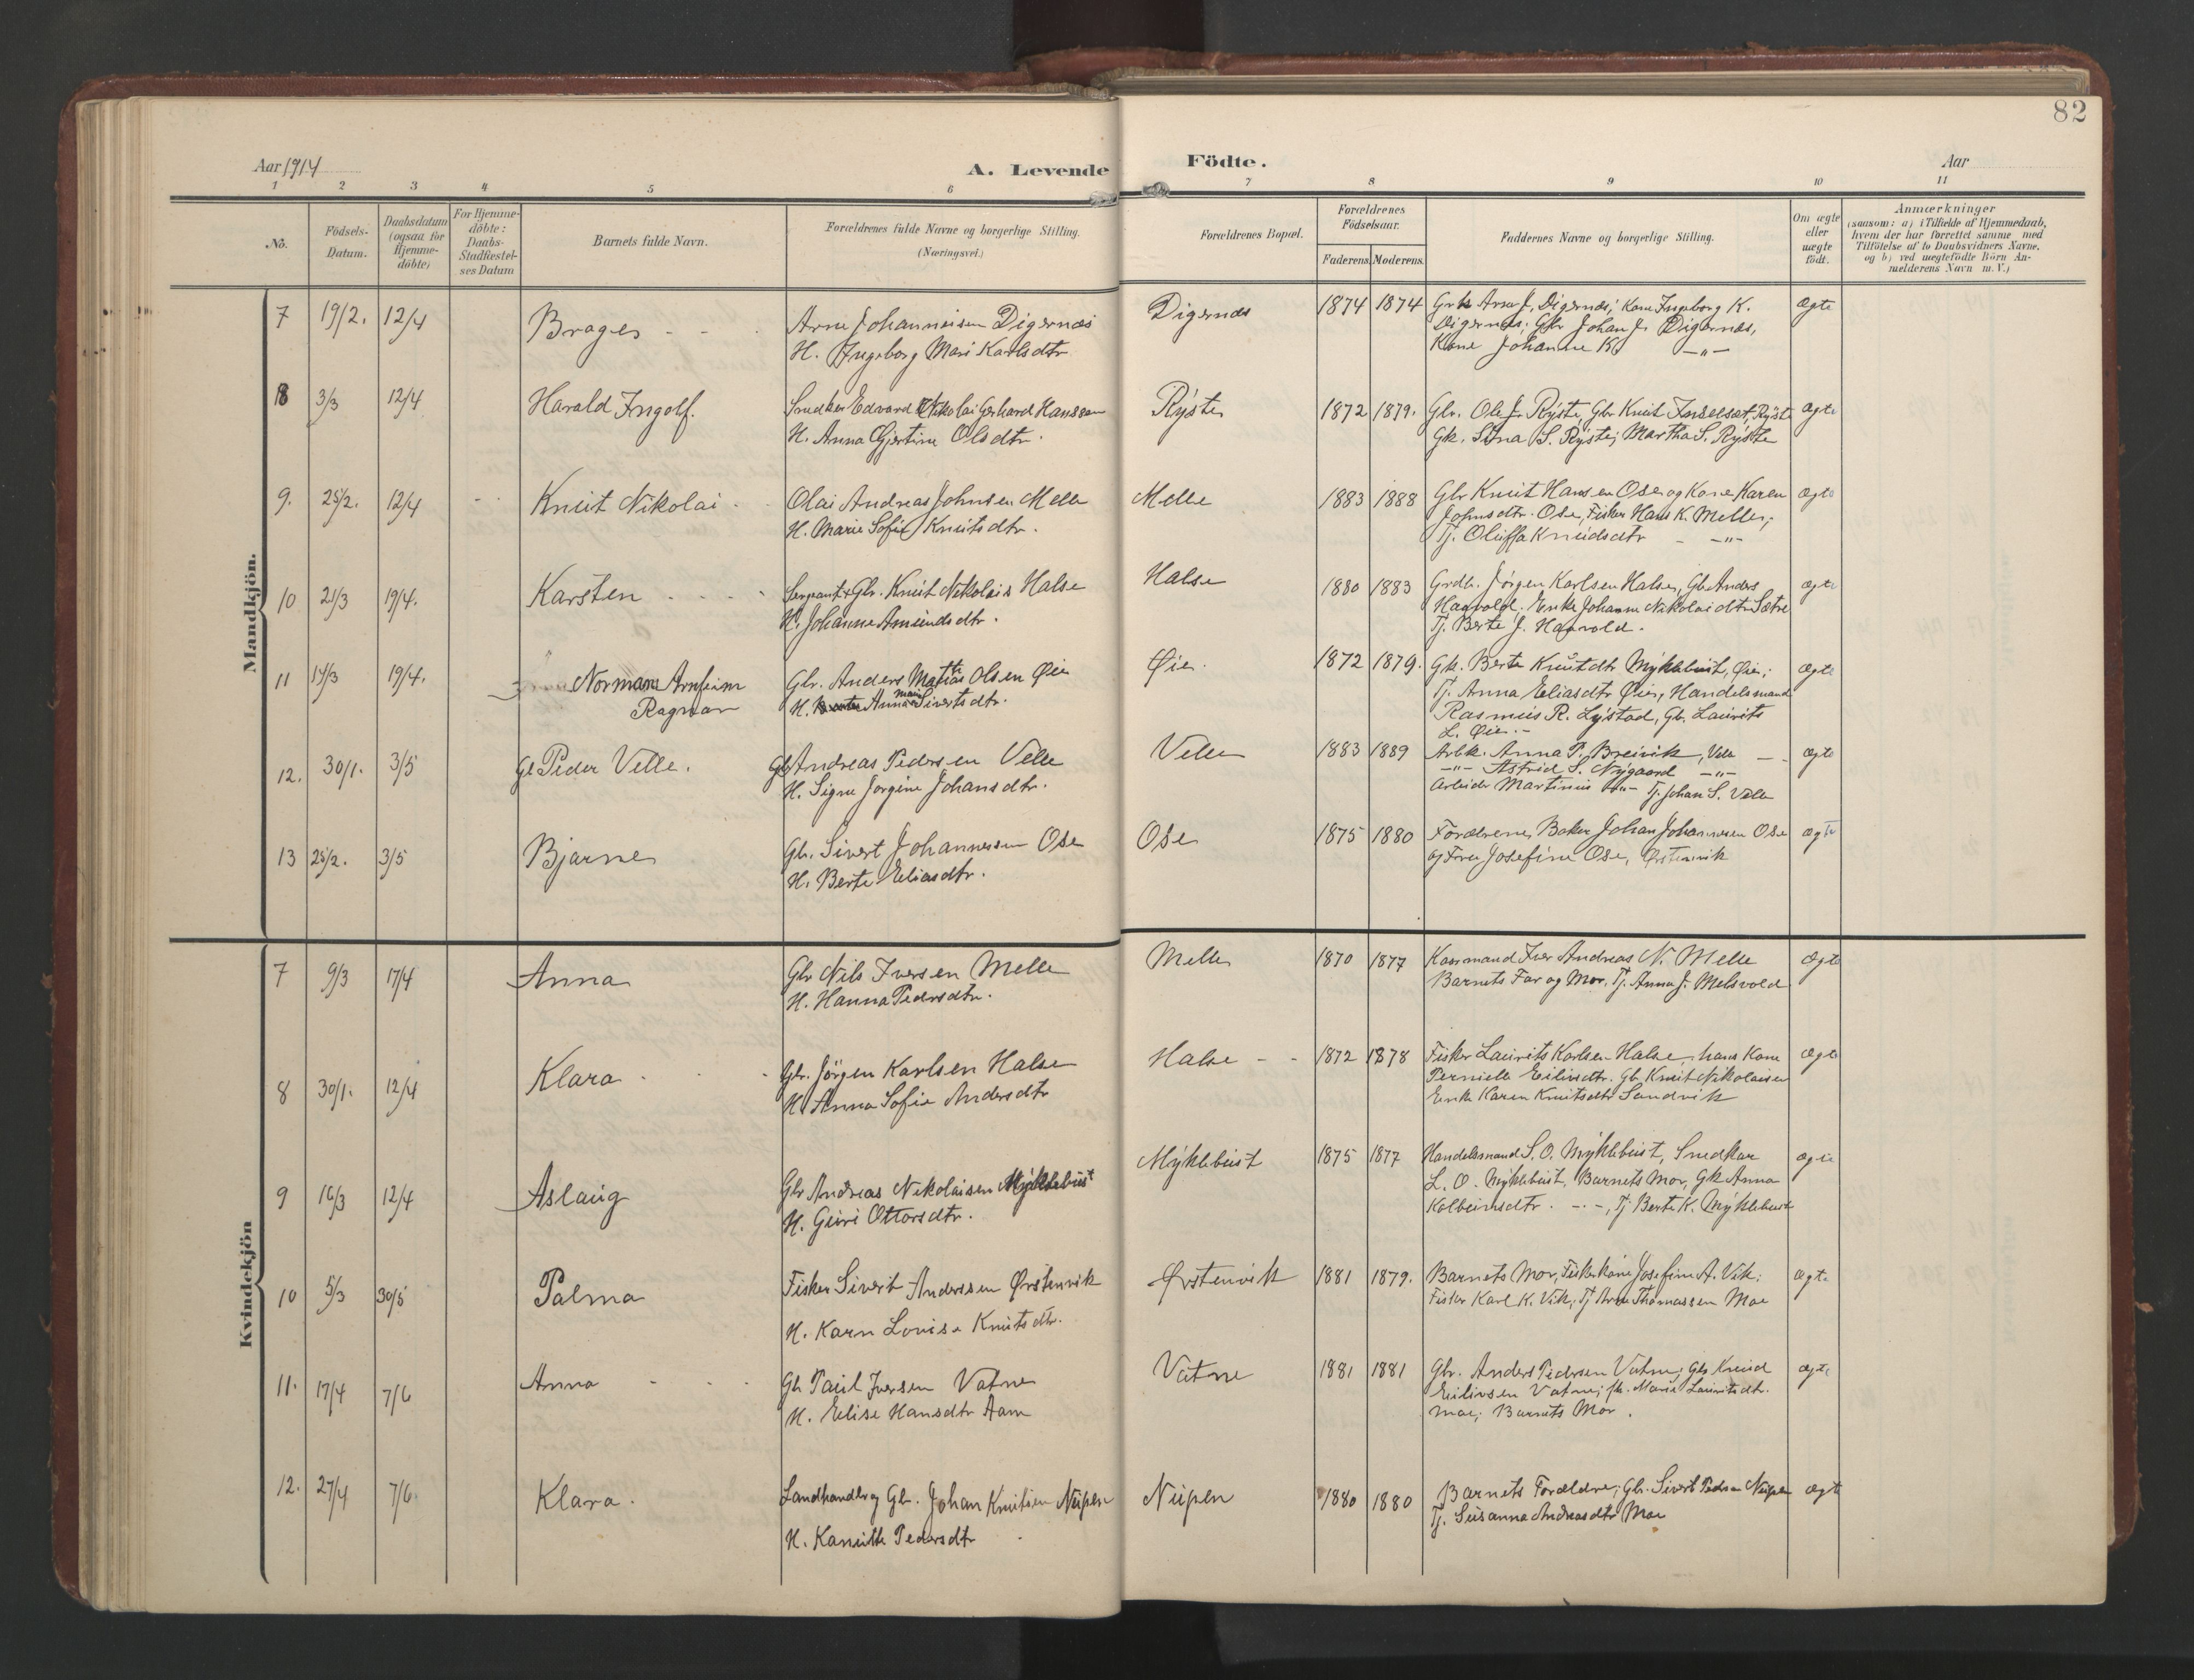 82
Aar 1914
A. Levende
Födte.
Aar
1 2 3 4 5 6 7 8 9 10 11
No.
Födsels-Datum.
Daabsdatum (ogsaa for Hjemme-döbte)
For Hjemme-döbte: Daabs-Stadfæstel-ses Datum
Barnets fulde Navn.
Forældrenes fulde Navne og borgerlige Stilling. (Næringsvei.)
Forældrenes Bopæl.
Forældrenes Födselsaar.
Faderens. Moderens.
Faddernes Navne og borgerlige Stilling.
Om ægte eller uægte födt.
Anmærkninger
(saasom: a) i Tilfælde af Hjemmedaab, hvem der har forrettet samme med Tilföielse af to Daabsvidners Navne, og b) ved uægtefödte Börn An-melderens Navn m. V.)
Mandkjön.
7 19/2. 12/4 Brages - - Arne Johannesen Digernæs Digernæs 1874 1874 Arne J. Digernæs; Kone Ingeborg K. Ægte
H. Ingeborg Mari Karlsdtr. Digernæs; Gbr Johan J. Digernæs,
Kone Johanne K. —"—
8 3/3 12/4 Harald Ingolf. Snedker Edvard Nikolai Gerhard Hanssen Ryste 1872 1879. Gbr. Ole J. Ryste, Gbr Knut Ryste Ægte
H. Anna Gjertine Olsdtr. Gk. Sina S. Ryste; Martha S. Ryste
9. 25/2. 12/4 - - Knut Nikolai Olai Andreas Johnsen Melle Melle 1883 1888 Gbr Knut Hansen Ose og Kone Karen Ægte
H. Marie Sofie Knutsdtr. Johnsdtr. Ose, Fisker Hans K. Melle;
Tj. Oluffa Knudsdtr - —"—
10 21/3 19/4. Karsten - - Sergeant & Gbr. Knut Nikolais Halse Halse 1880 1883 Grdb. Jørgen Karlsen Halse, Gbr Anders ægte
H. Johanne Amundsdtr. Haavold. Enke Johanne Nikolaidtr Sætre
Tj. Berte J. Haavold.
11 14/3 19/4. Norman Arnfinn Gbr. Anders Mathias Olsen Øie Øie. 1872 1879. Gk. Berte Knutdtr Myklebust, Øie; ægte
Ragnar H. Anna Marie Sivertsdtr. Tj. Anna Eliasdtr Øie, Handelsmand
Rasmus R. Lystad, Gb. Laurits
L. Øie. -
12. 30/1. 3/5 Peder Velle. Gb Andreas Pedersen Velle Velle 1883 1889 Arbk. Anna P. Breivik, Velle — ægte
H. Signe Jorgine Johansdtr. —"— Astrid S. Nygaard —"—
Arbeider Martinus —"— Tj. Johan S. Velle
13 25/2. 3/5 Bjarne Gb. Sivert Johannessen Ose Ose 1875 1880 Forældrene, Baker Johan Johannesen Ose ægte
H. Berte Eliasdtr. og Frue Josefine Ose, Ørstenvik
Kvindekjön
7 9/3 17/4 Anna Gbr Nils Iversen Melle Melle 1870 1877 Iver Andreas N. Melle Ægte
H. Hanna Pedersdtr. Barnets Far og Mor, Tj. Anna J. Melsvold
8 30/1. 12/4 Klara Gbr. Jörgen Karlsen Halse Halse - - 1872 1878 Fisker Laurits Karlsen Halse, hans Kone Ægte
H. Anna Sofie Andersdtr Pernille Eilivsdtr. Gb. Knut Nikolaisen
Enke Karen Knutsdtr Sandvik
9 16/3 12/4 Aslaug Gbr Andreas Nikolaisen Myklebust Myklebust 1875 1877 Handelsmand S. O. Myklebust, Snedker ægte
H. Guri Ottarsdtr. L. O. Myklebust, Barnets Mor, Gk Anna
Kolbeinsdtr. - - -, Tj Berte K. Myklebust
10 5/3 30/5 Palma Fisker Sivert Anderssen Ørstenvik Ørstenvik 1881 1879. Barnets Mor, Fiskerkone Josefine A. Vik; ægte
H. Karn Lovise Knutsdtr. Fisker Karl K. Vik; Tj Arne Thomassen Moe
11. 17/4 7/6 Anna - - - Gb Paul Iversen Vatne Vatne 1881 1881 Gbr. Anders Pedersen Vatne; Gbr Knud ægte
H. Elise Hansdtr Aam Eilivsen Vatne; Marie Lauritsdtr.
Moe; Barnets Mor.
12. 27/4 7/6. Klara. Landhandler og Gbr. Johan Knutsen Nupen Nupen 1880 1880 Barnets Forældre; Gbr. Sivert Pedersen Nupen ægte
H. Kanutte Pedersdtr Tj. Susanna Andreasdtr Moe